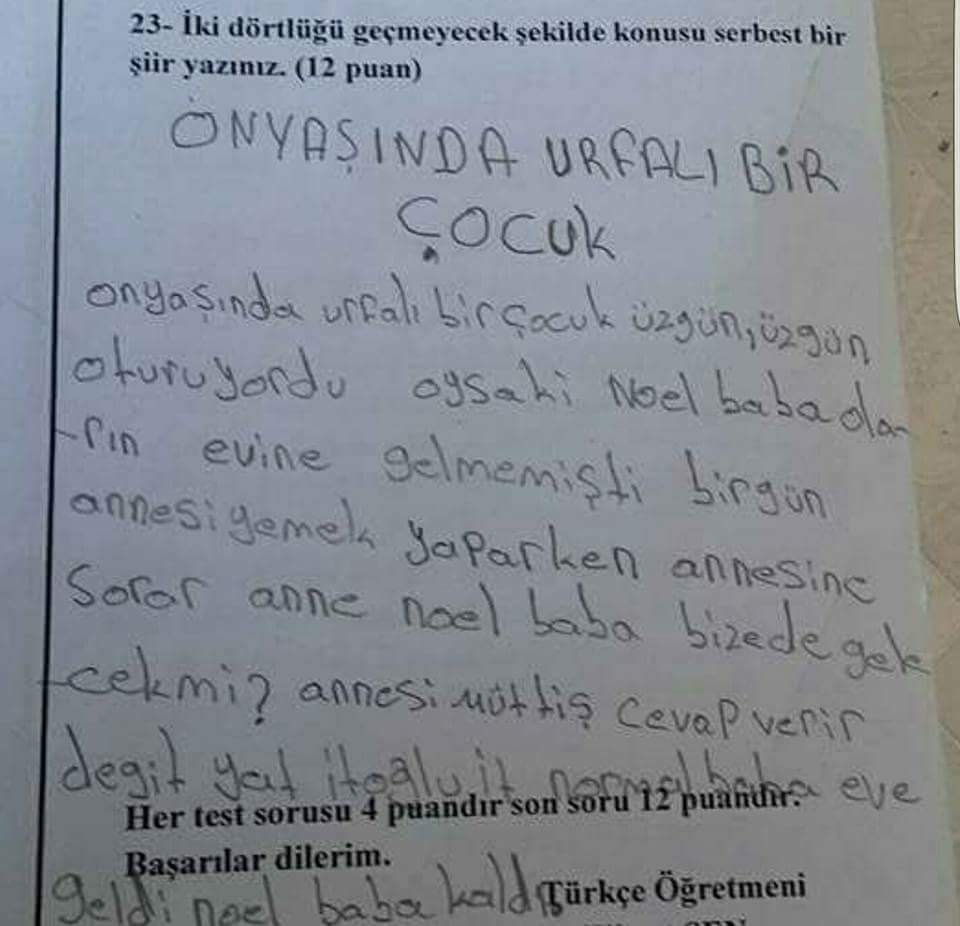 23- İki dörtlüğü geçmeyecek şekilde konusu serbest bir
şiir yazınız. (12 puan)
ONYAŞINDA URFALI BİR
ÇOCUK
onyaşında urfalı birçocuk üzgün,üzgün
oturuyordu oysaki Noel baba ola-
-rın evine gelmemişti birgün
annesi yemek yaparken annesine
Sorar anne noel baba bizede gele
-cekmi? annesi müttiş cevap verir
degit yat itoğlu it normal baba eve
Her test sorusu 4 puandır son soru 12 puandır.
Başarılar dilerim.
geldi noel baba kaldı
Türkçe Öğretmeni